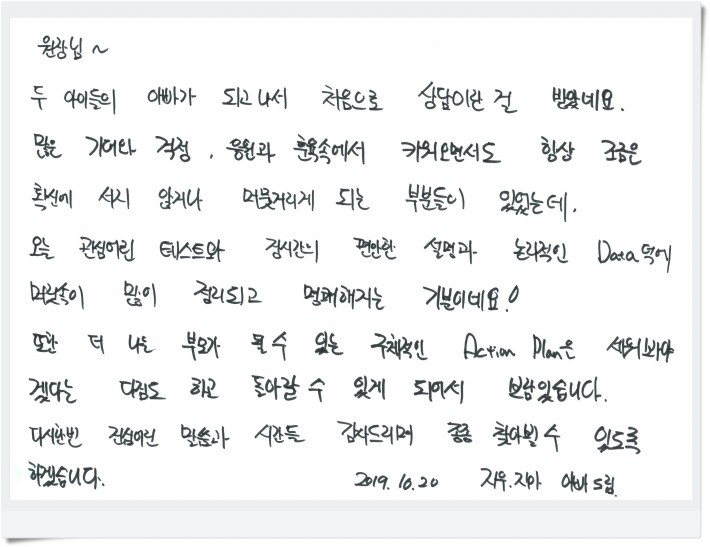 원장님 ~
두 아이들의 아빠가 되고나서 처음으로 상담이란 걸 받았네요.
많은 기대와 걱정, 응원과 훈육속에서 키워오면서도 항상 조금은
확신에 서지 않거나 머뭇거리게 되는 부분들이 있었는데,
오늘 관심어린 테스트와 장시간의 편안한 설명과 논리적인 Data덕에
머릿속이 많이 정리되고 명쾌해지는 기분이네요!
또한 더 나은 부모가 될 수 있는 구체적인 Action Plan은 세워봐야
겠다는 다짐도 하고 돌아갈 수 있게 되어서 보람있습니다.
다시한번 진심어린 말씀과 시간들 감사드리며 종종 찾아뵐 수 있도록
하겠습니다. 2019.10.20 지우.지아 아빠드림.